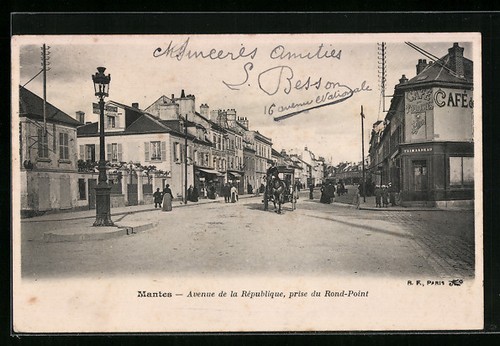 Sincères Amitiés
S. Besson
16 avenue Nationale
CAFÉ
CAFÉ
Mantes — Avenue de la République, prise du Rond-Point
A. F., PARIS